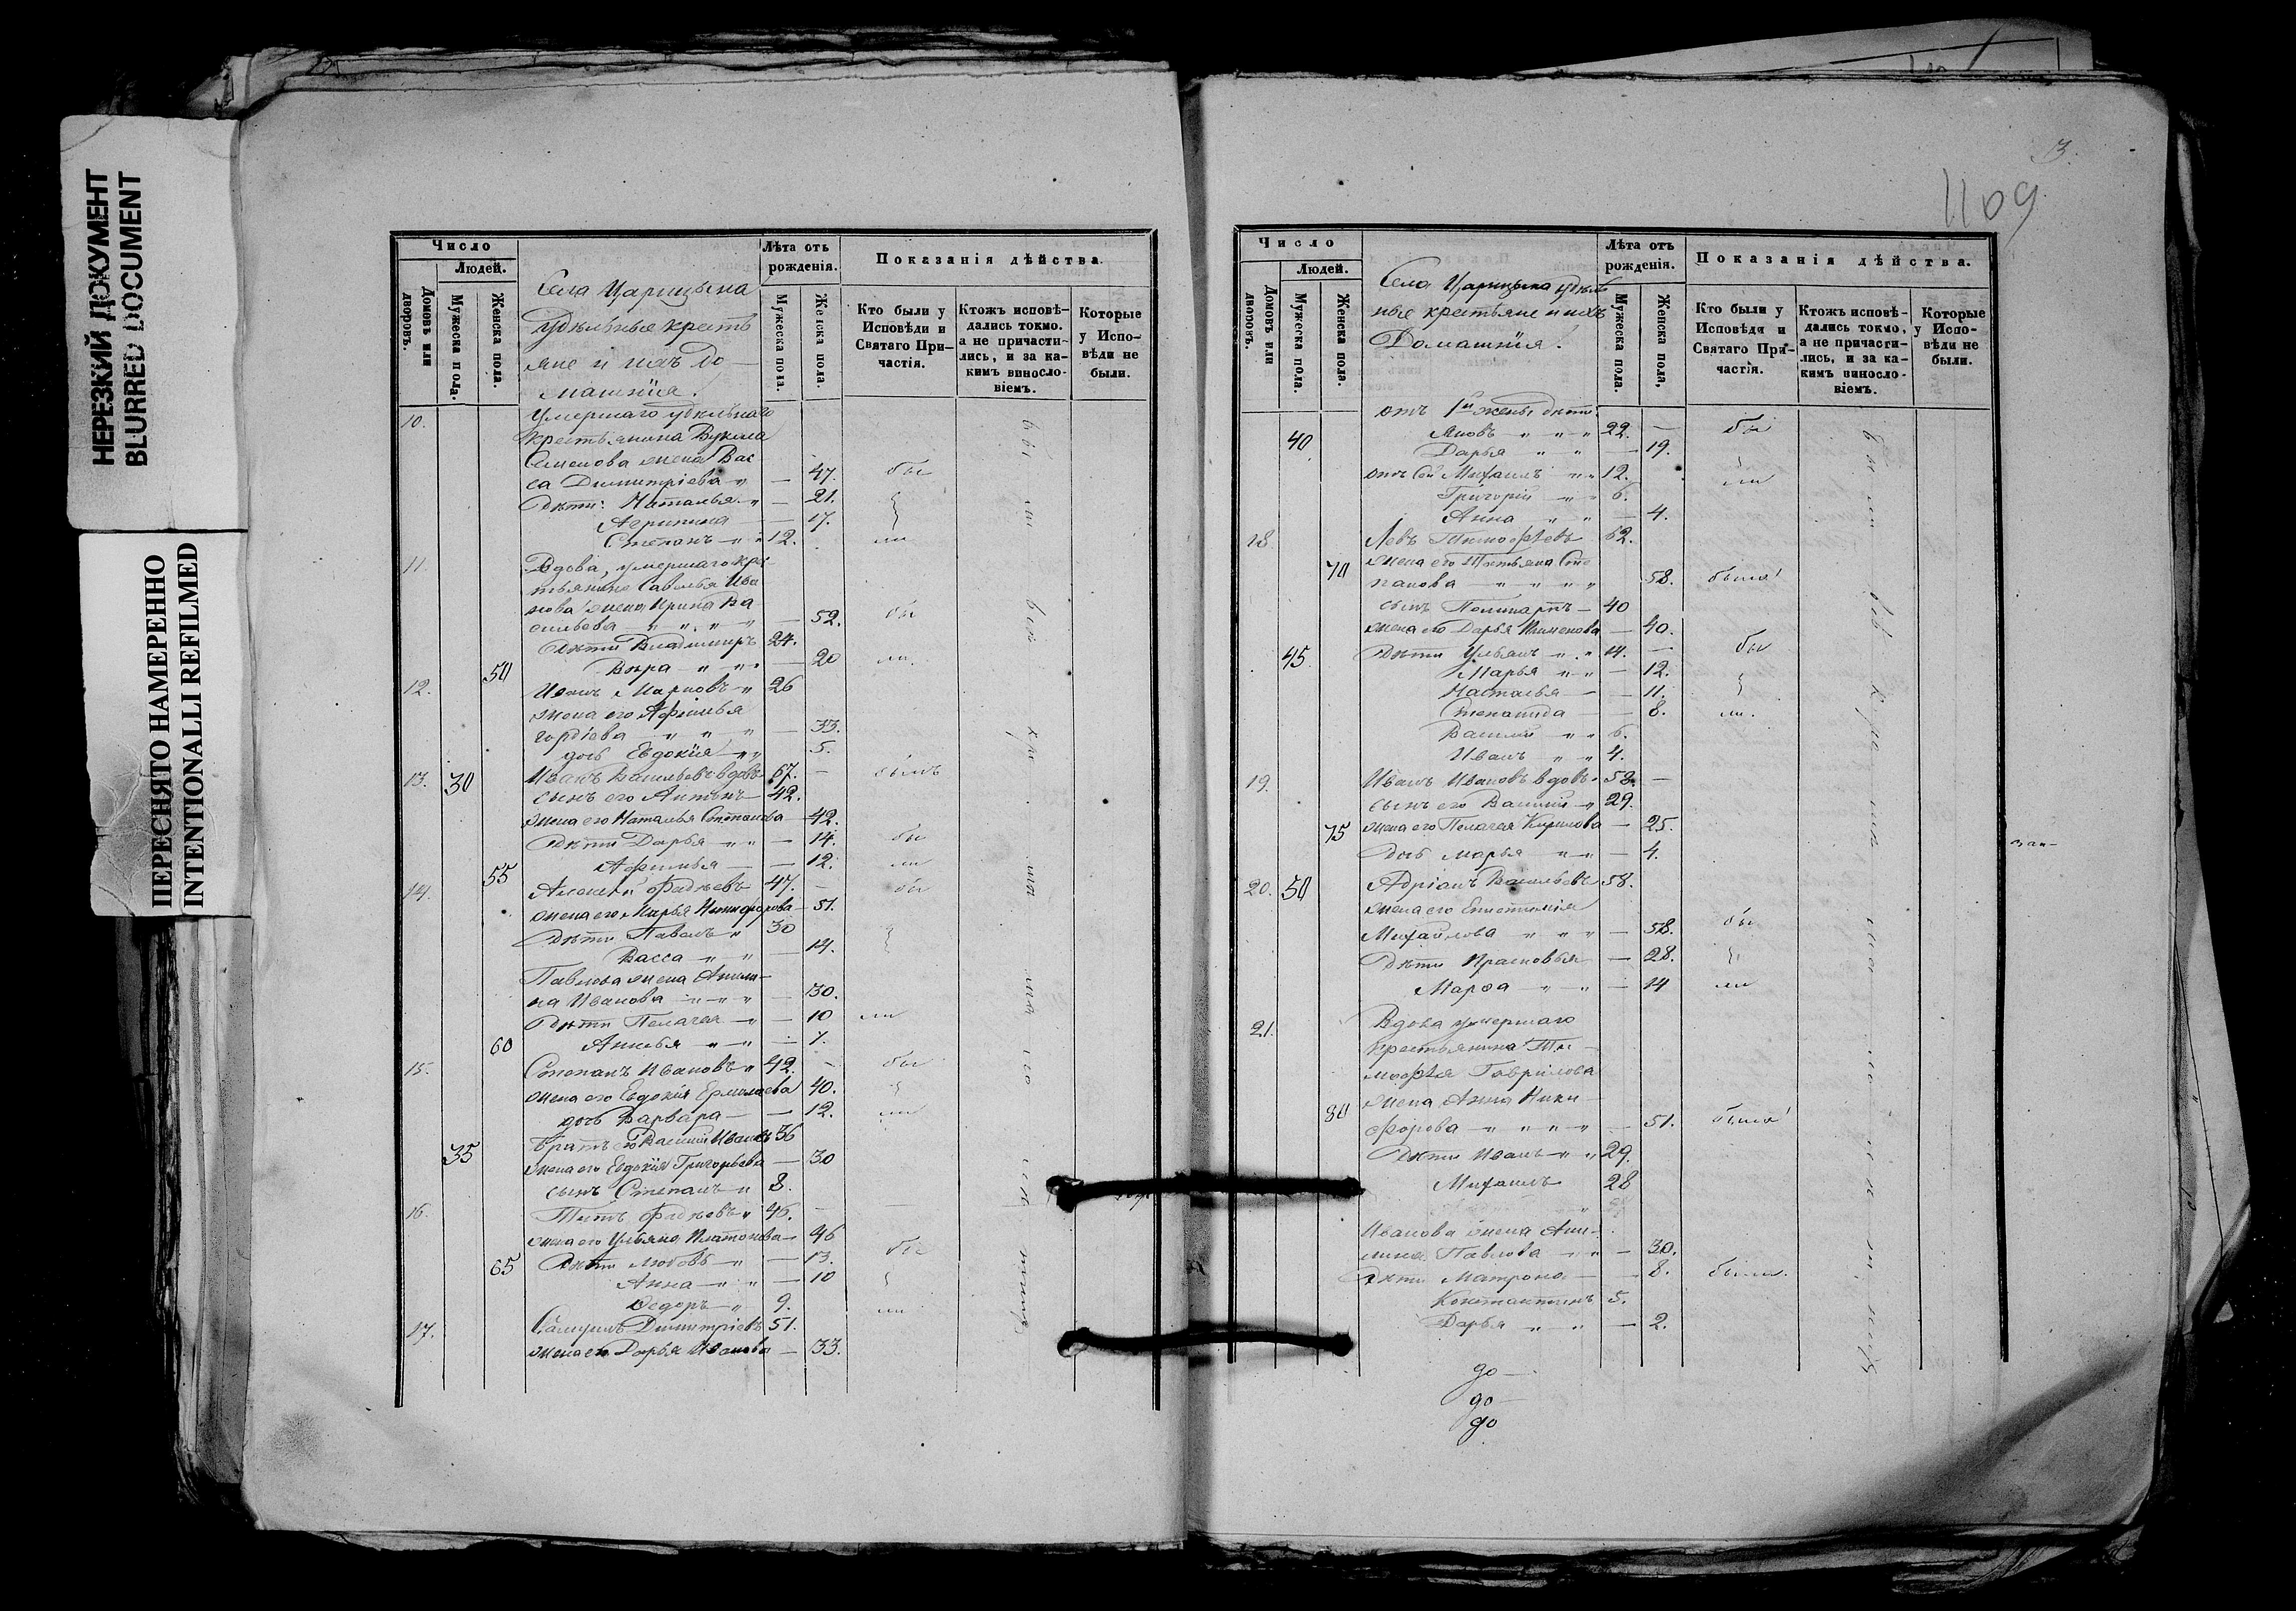 НЕРЕЗКИЙ ДОКУМЕНТ
BLURRED DOCUMENT
ПЕРЕСНЯТО НАМЕРЕННО
INTENTIONALLI REFILMED
Число
Людей.
Домовъ или дворовъ.
Мужеска пола.
Женска пола.
Села Царицына
Удѣльные кресть
яне и ихъ До-
машнія.
Лѣта отъ рожденія.
Мужеска пола.
Женска пола.
Показанія дѣйства.
Кто были у Исповѣди и Святаго Причастія.
Ктожъ исповѣдались токмо, а не причастились, и за какимъ винословіемъ.
Которые у Исповѣди не были.
10. Умершаго удѣльнаго
крестьянина Вукола
Семенова жена Вас
са Димитріева — 47. бы
Дѣти: Наталья — 21.
Агрипина — 17.
Степанъ 12. ли
11. Вдова, умершаго крес
тьянина Савелья Ива
нова жена Ирина Ва
сильева — 52. бы
Дѣти Владимиръ 24.
50 Вѣра — 20 ли
12. Иванъ Марковъ 26
жена его Афимья
гордѣева — 33.
дочь Евдокія 5.
13. 30 Иванъ Васильевъ вдовъ 67. — былъ
сынъ его Антонъ 42.
жена его Наталья Степанова — 42.
Дѣти Дарья — 14. бы
55 Афимья — 12. ли
14. Алексѣй Фадѣевъ 47. — бы
жена его Марья Никифорова — 51.
Дѣти Павелъ 30
Васса — 14.
Павлова жена Акили-
на Иванова — 30.
Дѣти Пелагея — 10 ли
60 Анисья — 7.
15. Степанъ Ивановъ 42. — бы
жена его Евдокія Ермолаева 40.
дочь Варвара — 12. ли
35 братъ его Василій Ивановъ 36
жена его Евдокія Григорьева — 30
сынъ Степанъ 8.
16. Титъ Фадѣевъ 46. —
жена его Ульяна Платонова — 46
65 Дѣти Любовь — 13. бы
Анна — 10
Ѳедоръ 9. ли
17. Димитріевъ 51.
жена его Дарья Иванова — 33.
3.
1109
Число
Людей.
Домовъ или дворовъ.
Мужеска пола.
Женска пола.
Села Царицына удѣль
ные крестьяне и ихъ
Домашнія.
Лѣта отъ рожденія.
Мужеска пола.
Женска пола,
Показанія дѣйства.
Кто были у Исповѣди и Святаго Причастія.
Ктожъ исповѣдались токмо, а не причастились, и за какимъ винословіемъ.
Которые у Исповѣди не были.
отъ 1й жены дѣти:
40 Яковъ 22. — бы
Дарья — 19.
отъ сей Михаилъ 12. ли
Григорій 6.
Анна — 4.
18 Левъ Тимоѳѣевъ 62.
70 жена его Татьяна Сте
панова 58. была
сынъ Поликарпъ — 40
жена его Дарья Пименова — 40.
45 Дѣти Ульянъ 14. — бы
Марья — 12.
Наталья — 11.
Степанида — 8. ли.
Василій 6.
Иванъ 4.
19. Иванъ Ивановъ вдовъ 52. —
сынъ его Василій 29.
75 жена его Пелагея Кирилова — 25.
дочь Марья — 4.
20. 50 Адріанъ Васильевъ 58.
жена его Епистимія
Михайлова — 58. бы
Дѣти Прасковья — 28.
Марѳа — 14 ли
21. Вдова умершаго
крестьянина Ти-
моѳѣя Гаврилова
80 жена Анна Ники-
форова — 51. была
Дѣти Иванъ 29.
Михаилъ 28
Иванова жена Аки-
лина Павлова — 30.
Дѣти Матрона — 8. были.
Константинъ 5.
Дарья — 2.
до —
до —
до